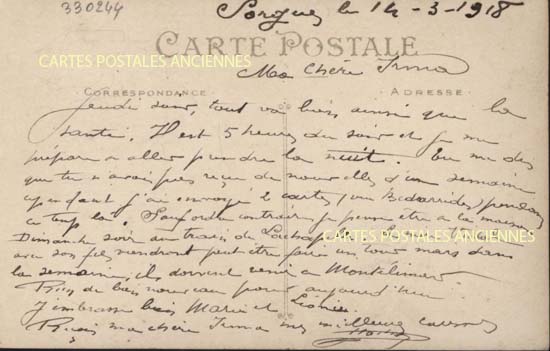 330244
Sorgues le 14-3-1918
CARTE POSTALE
CARTES POSTALES ANCIENNES
Ma Chère Irma
CORRESPONDANCE
ADRESSE
Jeudi soir, tout va bien ainsi que la
santé. Il est 5 heures du soir et je me
prépare a aller prendre la nuit. Tu me dis
que tu n'avais pas reçu de nouvelles d'une semaine
cependant j'ai envoyé 2 cartes (une Bédarrides) pendant
ce temp la. Sauf ordre contraire je pense être a la maison
Dimanche soir au train de
CARTES POSTALES ANCIENNES
avec son fils viendront peut être faire un tour mars dans
la semaine, ils doivent venir a Montélimar.
Rien de bien nouveau pour aujourd'hui
J'embrasse bien Marie et
Reçois ma chère Irma mes meilleures caresses